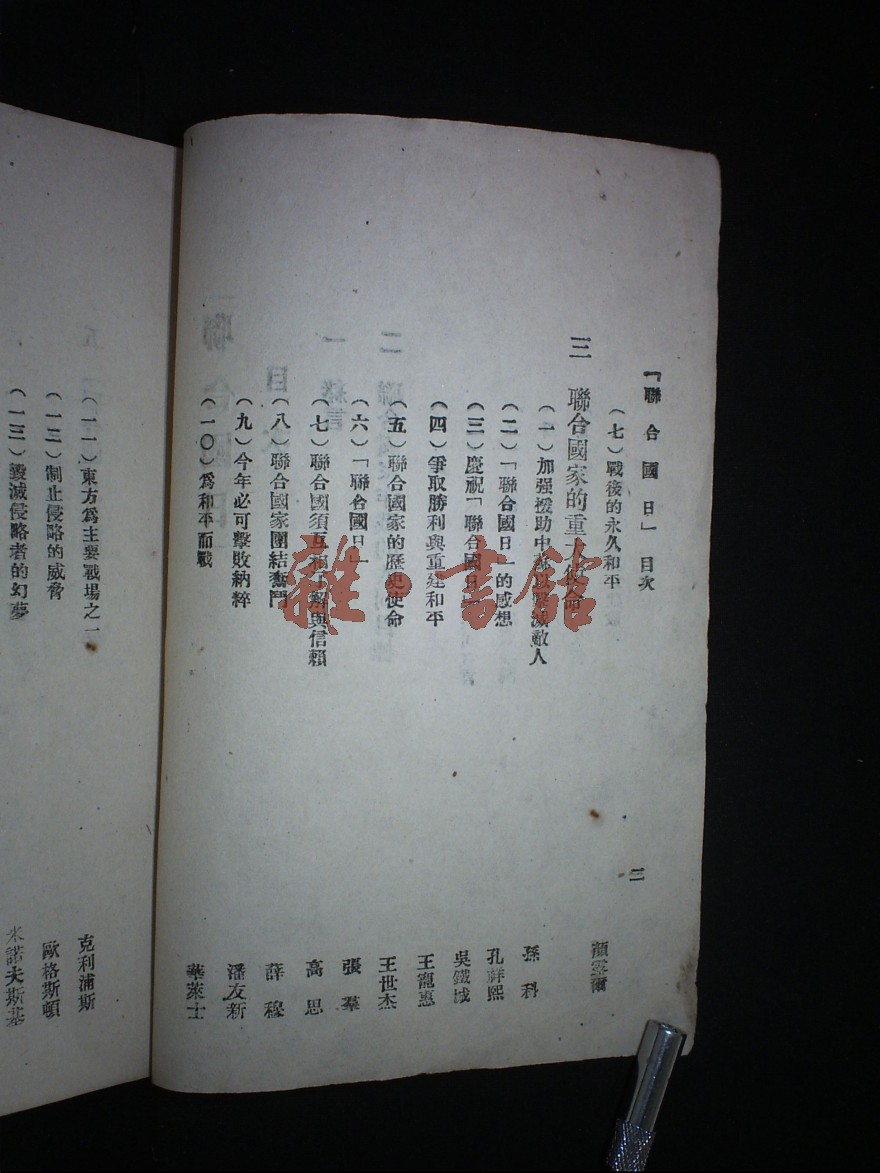 「聯合國日」目次
二
（七）戰後的永久和平 顏露爾
三 聯合國家的重大使命
（一）加强援助中蘇以擊滅敵人 孫科
（二）「聯合國日」的感想 孔祥熙
（三）慶祝「聯合國日」 吳鐵城
（四）爭取勝利與重建和平 王寵惠
（五）聯合國家的歷史使命 王世杰
（六）「聯合國日」 張羣
（七）聯合國須互相了解與信賴 高思
（八）聯合國家團結奮鬥 薛穆
（九）今年必可擊敗納粹 潘友新
（一〇）爲和平而戰 華萊士
（一一）東方爲主要戰場之一 克利浦斯
（一二）制止侵略的威脅 歐格斯頓
（一三）毀滅侵略者的幻夢 米諾夫斯基
雜·書館